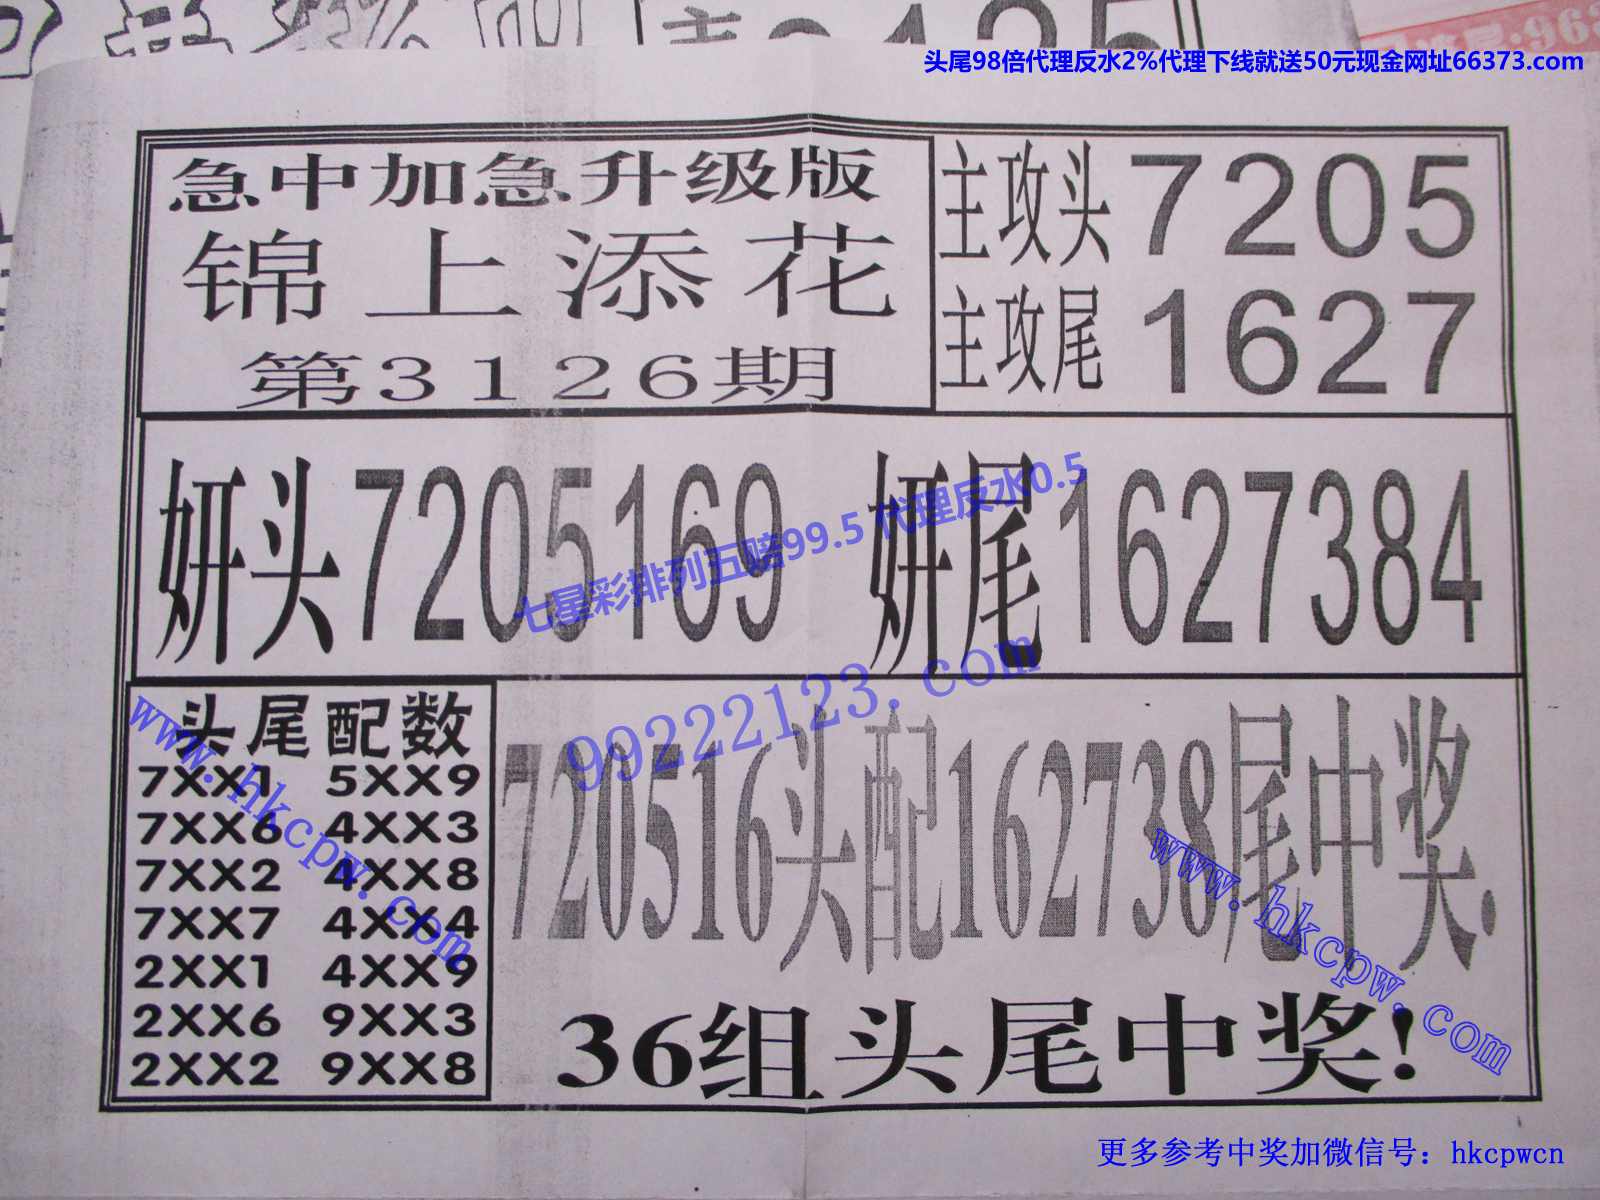 头尾98倍代理反水2%代理下线就送50元现金网址66373.com
急中加急升级版
锦上添花
第3126期
主攻头7205
主攻尾1627
妍头7205169 妍尾1627384
七星彩排列五赔99.5 代理反水0.5
99222123.com
头尾配数
7XX1 5XX9
7XX6 4XX3
7XX2 4XX8
7XX7 4XX4
2XX1 4XX9
2XX6 9XX3
2XX2 9XX8
www.hkcpw.com
720516头配162738尾中奖.
www.hkcpw.com
36组头尾中奖!
更多参考中奖加微信号：hkcpwcn